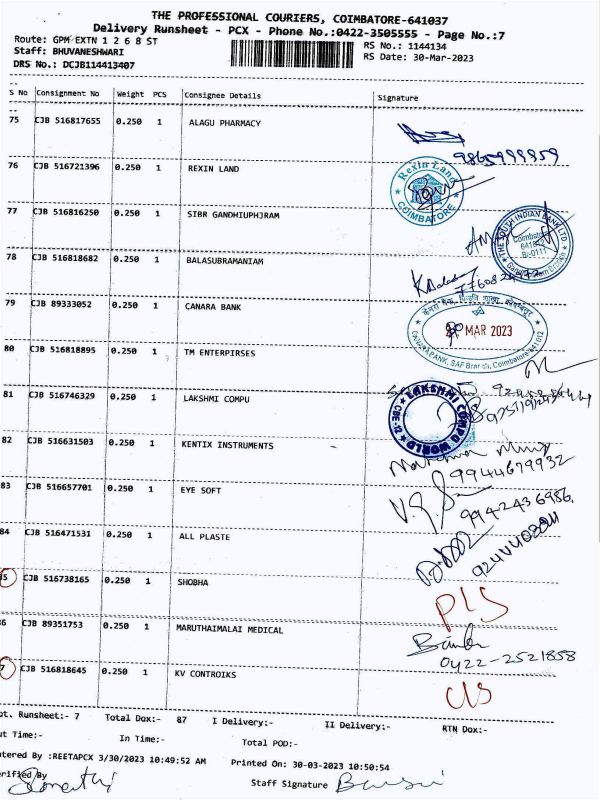 THE PROFESSIONAL COURIERS, COIMBATORE-641037
Delivery Runsheet - PCX - Phone No.:0422-3505555 - Page No.:7
Route: GPM EXTN 1 2 6 8 ST RS No.: 1144134
Staff: BHUVANESHWARI RS Date: 30-Mar-2023
DRS No.: DCJB114413407
S No Consignment No Weight PCS Consignee Details Signature
75 CJB 516817655 0.250 1 ALAGU PHARMACY
9865999859
76 CJB 516721396 0.250 1 REXIN LAND
Rexin Land
COIMBATORE
77 CJB 516816250 0.250 1 SIBR GANDHIUPHJRAM
THE SOUTH INDIAN BANK LTD
Coimbatore
78 CJB 518818682 0.250 1 BALASUBRAMANIAM
79 CJB 89333052 0.250 1 CANARA BANK
MAR 2023
CANARA BANK, SAF Branch, Coimbatore-641012
80 CJB 516818895 0.250 1 TM ENTERPIRSES
81 CJB 516746329 0.250 1 LAKSHMI COMPU
LAKSHMI COMPU WORLD
CBE-12
82 CJB 516631503 0.250 1 KENTIX INSTRUMENTS
9944679932
83 CJB 516657701 0.250 1 EYE SOFT
9942436986
84 CJB 516471531 0.250 1 ALL PLASTE
85 CJB 516738165 0.250 1 SHOBHA
PLS
86 CJB 89351753 0.250 1 MARUTHAIMALAI MEDICAL
0422-2521858
87 CJB 516818645 0.250 1 KV CONTROIKS
pt. Runsheet:- 7 Total Dox:- 87 I Delivery:- II Delivery:- RTN Dox:-
ut Time:- In Time:- Total POD:-
ntered By :REETAPCX 3/30/2023 10:49:52 AM Printed On: 30-03-2023 10:50:54
erified By Staff Signature